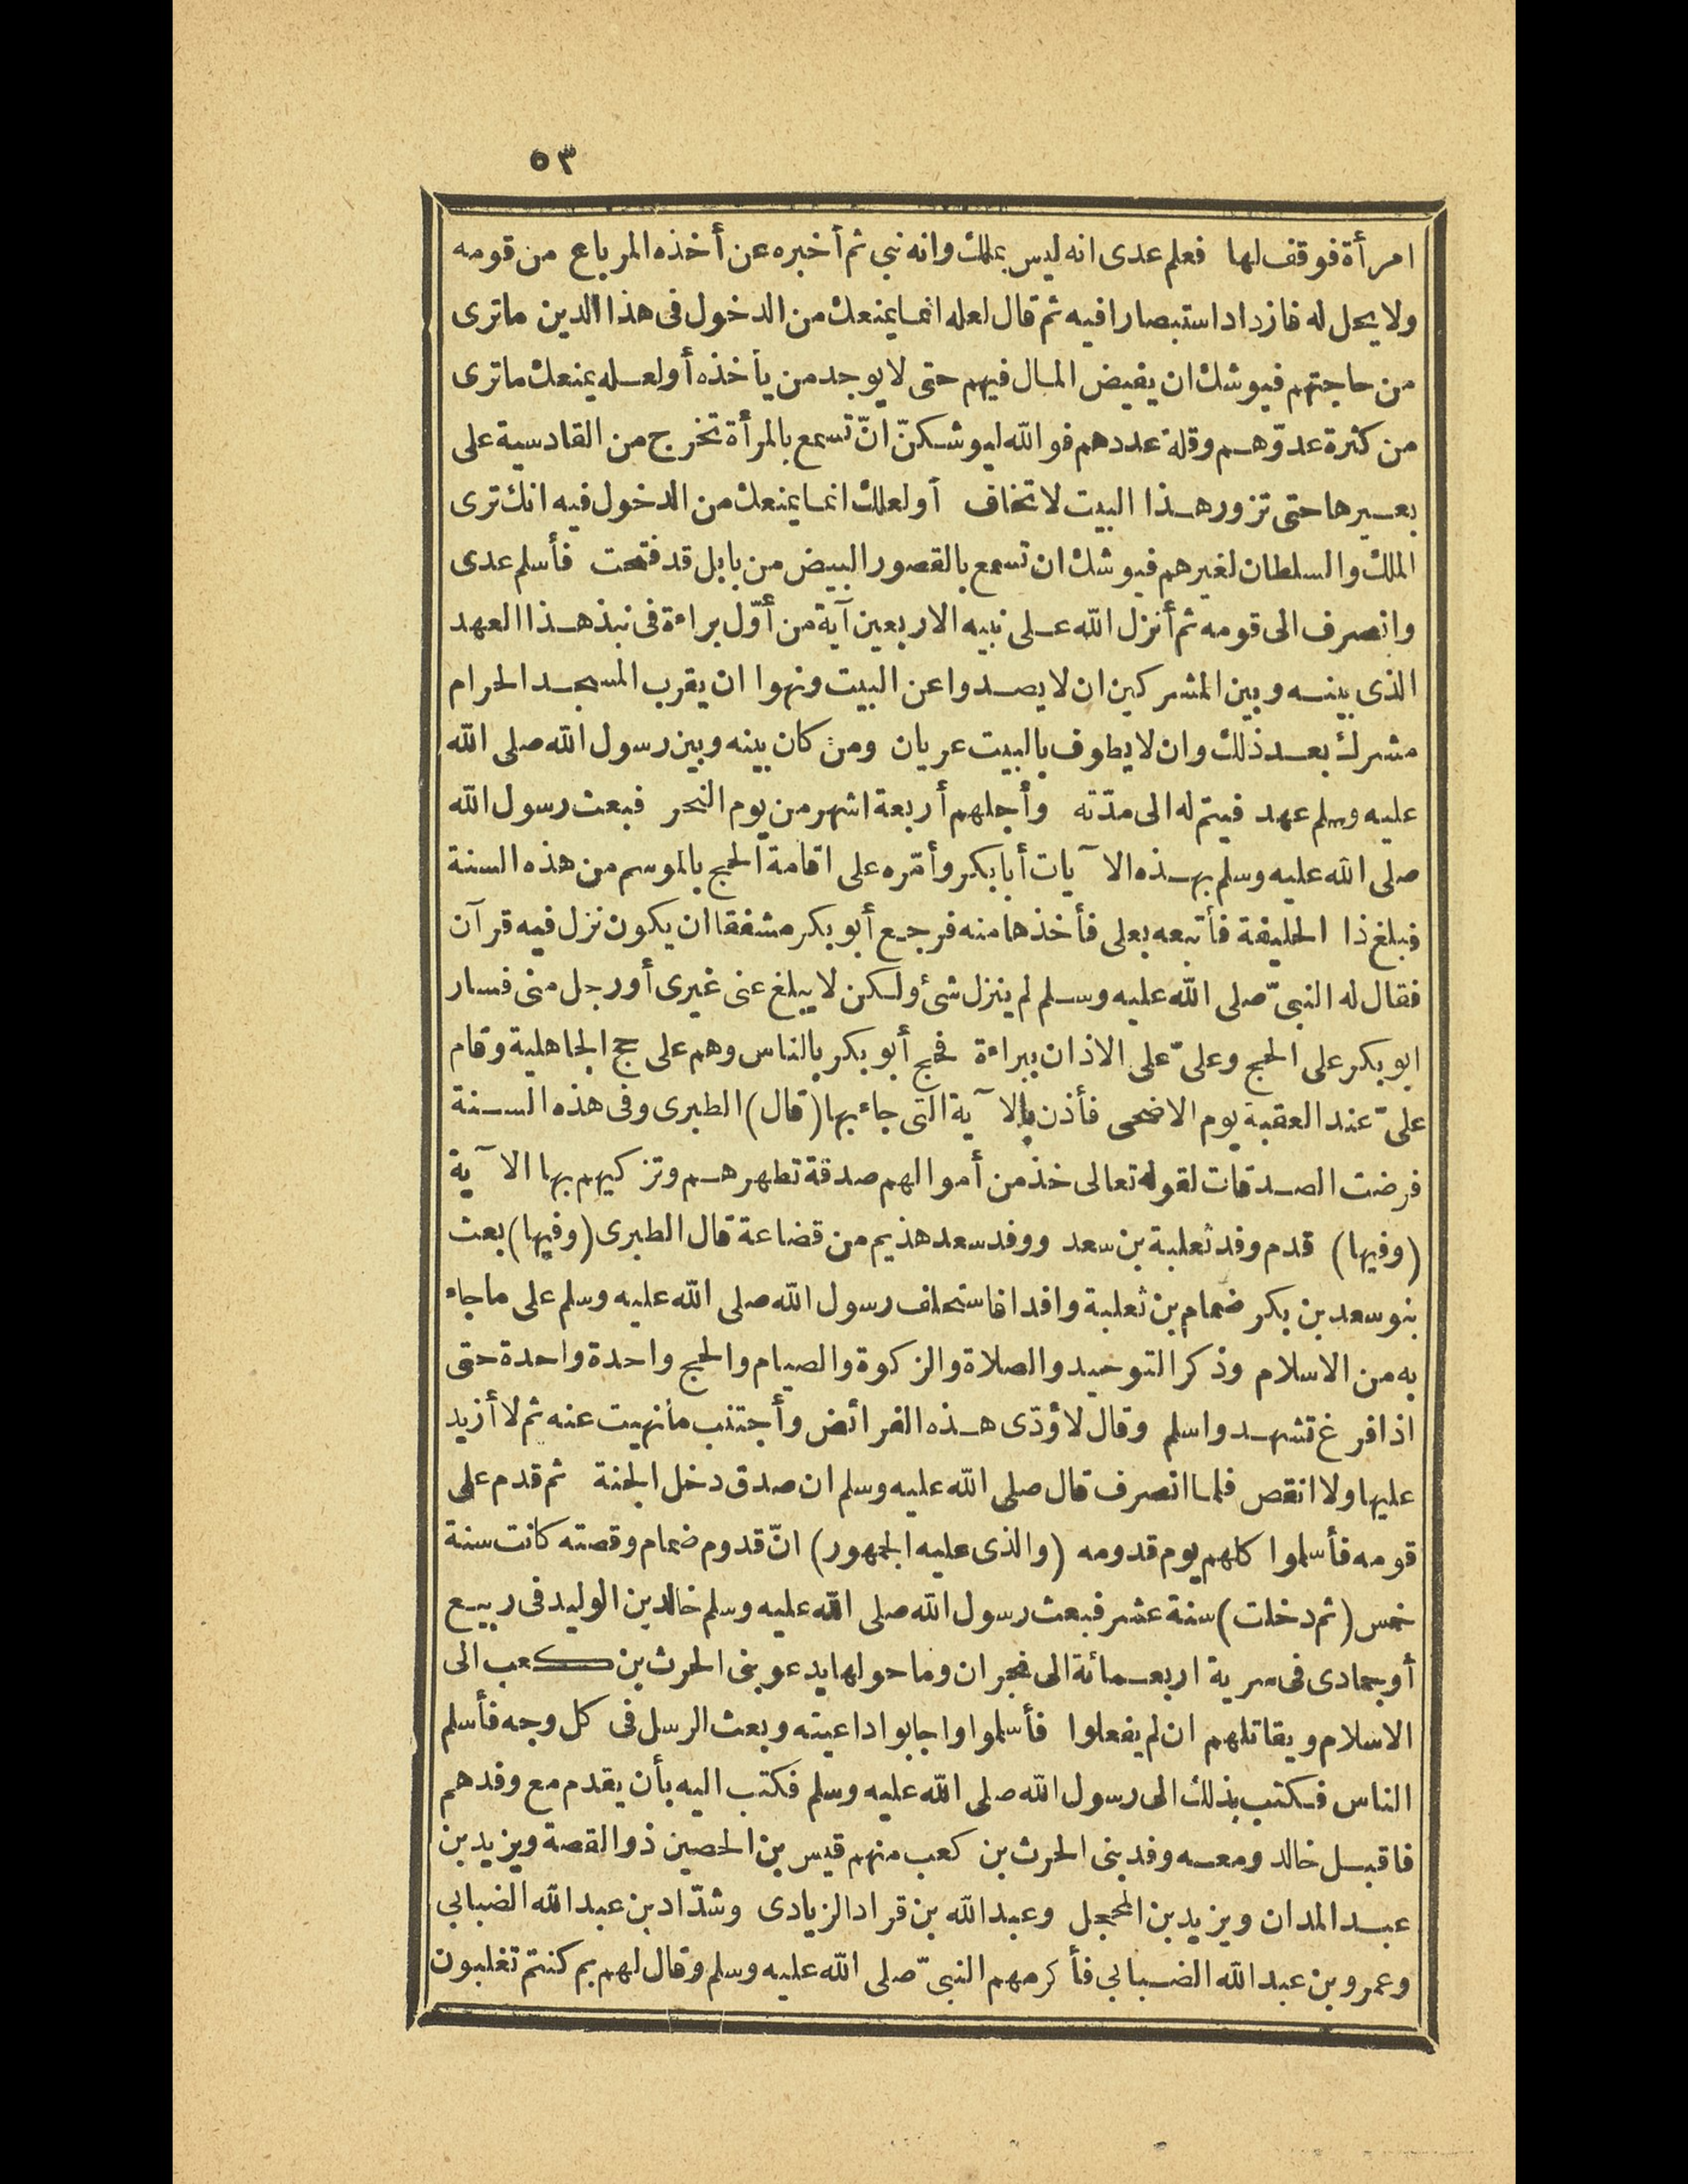 ٥٣
امرأة فوقف لها فعلم عدى انه ليس بملك وانه نبي ثم أخبره عن أخذه المرباع من قومه
ولا يحل له فازداد استبصارا فيه ثم قال لعله انما يمنعك من الدخول فى هذا الدين ماترى
من حاجتهم فيوشك ان يفيض المال فيهم حتى لا يوجد من يأخذه أولعله يمنعك ماترى
من كثرة عدوّهم وقلة عددهم فو الله ليوشكنّ انّ تسمع بالمرأة تخرج من القادسية على
بعيرها حتى تزور هذا البيت لا تخاف أولعلك انما يمنعك من الدخول فيه انك ترى
الملك والسلطان لغيرهم فيوشك ان تسمع بالقصور البيض من بابل قد فتحت فأسلم عدى
وانصرف الى قومه ثم أنزل الله على نبيه الاربعين آية من أوّل براءة فى نبذ هذا العهد
الذى بينه وبين المشركين ان لا يصدوا عن البيت ونهوا ان يقرب المسجد الحرام
مشرك بعد ذلك وان لا يطوف بالبيت عريان ومن كان بينه وبين رسول الله صلى الله
عليه وسلم عهد فيتم له الى مدّته وأجلهم أربعة اشهر من يوم النحر فبعث رسول الله
صلى الله عليه وسلم بهذه الآيات أبا بكر وأمّره على اقامة الحج بالموسم من هذه السنة
فبلغ ذا الحليفة فأتبعه بعلى فأخذها منه فرجع أبو بكر مشفقا ان يكون نزل فيه قرآن
فقال له النبىّ صلى الله عليه وسلم لم ينزل شئ ولكن لا يبلغ عنى غيرى أو رجل منى فسار
ابو بكر على الحج وعلىّ على الاذان ببراءة فحج أبو بكر بالناس وهم على حج الجاهلية وقام
علىّ عند العقبة يوم الاضحى فأذن بالآية التى جاء بها (قال) الطبرى وفى هذه السنة
فرضت الصدقات لقوله تعالى خذ من أموالهم صدقة تطهرهم وتزكيهم بها الآية
(وفيها) قدم وفد ثعلبة بن سعد ووفد سعد هذيم من قضاعة قال الطبرى (وفيها) بعث
بنو سعد بن بكر ضمام بن ثعلبة وافدا فاستحلف رسول الله صلى الله عليه وسلم على ماجاء
به من الاسلام وذكر التوحيد والصلاة والزكوة والصيام والحج واحدة واحدة حتى
اذا فرغ تشهد واسلم وقال لأؤدّى هذه الفرائض وأجتنب مانهيت عنه ثم لا أزيد
عليها ولا انقص فلما انصرف قال صلى الله عليه وسلم ان صدق دخل الجنة ثم قدم على
قومه فأسلموا كلهم يوم قدومه (والذى عليه الجمهور) انّ قدوم ضمام وقصته كانت سنة
خمس (ثم دخلت) سنة عشر فبعث رسول الله صلى الله عليه وسلم خالد بن الوليد فى ربيع
أو جمادى فى سرية اربعمائة الى نجران وماحولها يدعو بنى الحرث بن كعب الى
الاسلام ويقاتلهم ان لم يفعلوا فأسلموا واجابوا داعيته وبعث الرسل فى كل وجه فأسلم
الناس فكتب بذلك الى رسول الله صلى الله عليه وسلم فكتب اليه بأن يقدم مع وفدهم
فاقبل خالد ومعه وفد بنى الحرث بن كعب منهم قيس بن الحصين ذو القصة ويزيد بن
عبد المدان ويزيد بن المحجل وعبد الله بن قراد الزيادى وشدّاد بن عبد الله الضبابي
وعمرو بن عبد الله الضبابي فأكرمهم النبىّ صلى الله عليه وسلم وقال لهم بم كنتم تغلبون